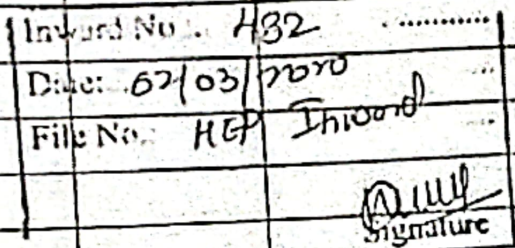 Inward No. 432
Date: 02/03/2020
File No. HEP Inward
Signature